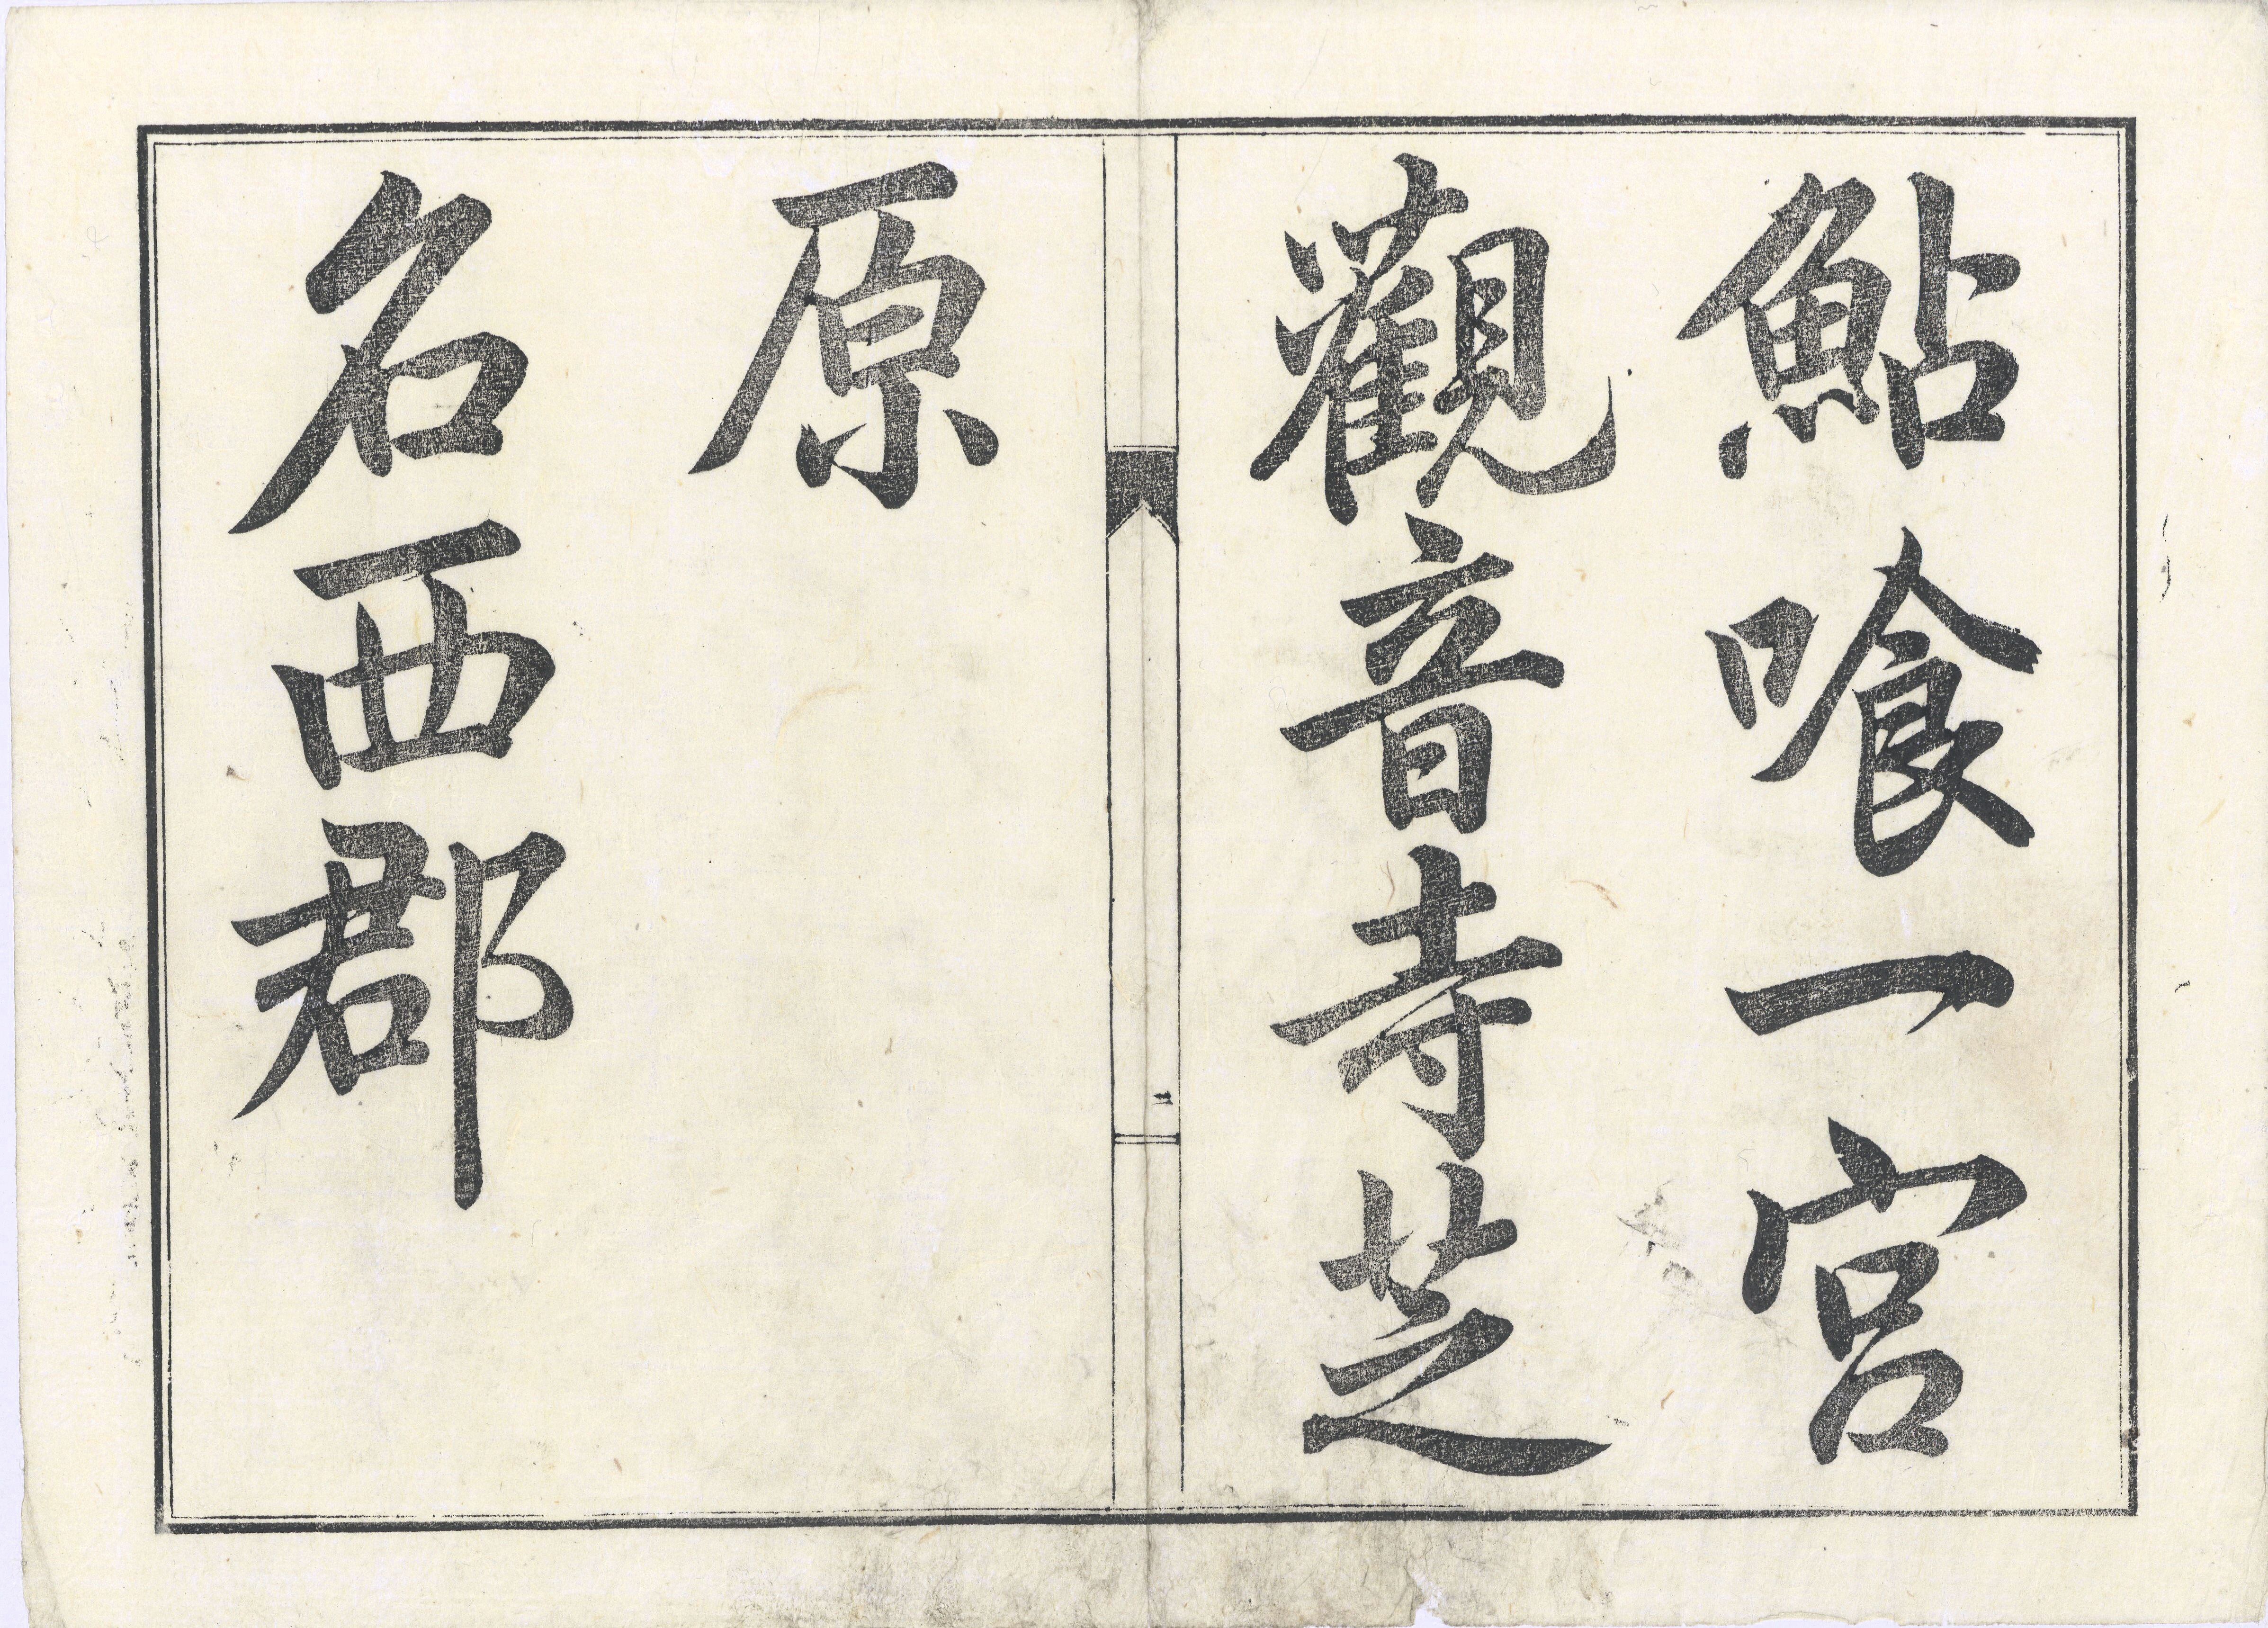 鮎喰一宮
觀音寺芝
原
名西郡